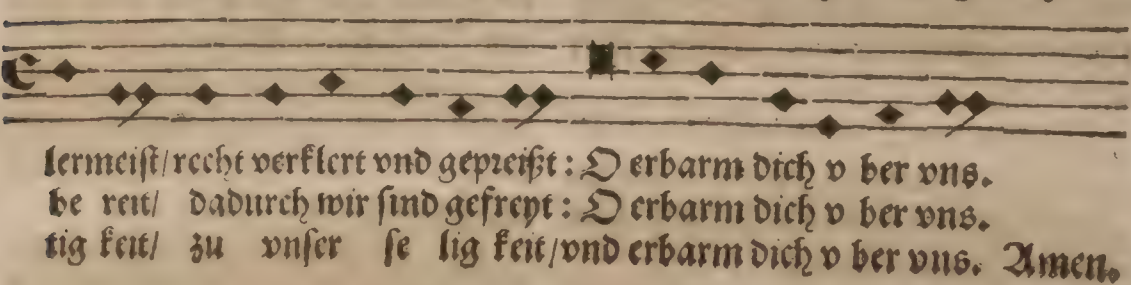 lermeiſt/ recht verklert vnd gepreißt: O erbarm dich v ber vns.
be reit/ dadurch wir ſind gefreyt: O erbarm dich v ber vns.
tig keit/ zu vnſer ſe lig keit/ vnd erbarm dich v ber vns. Amen.